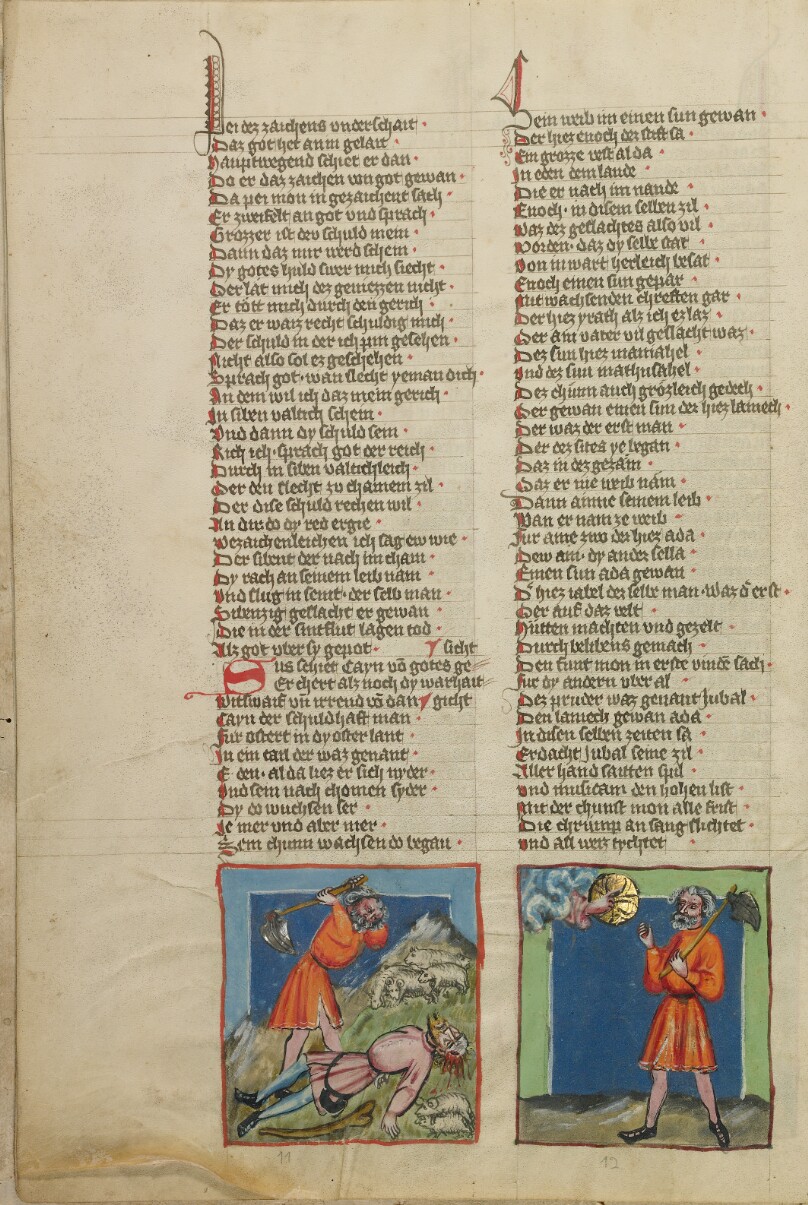 Pei dez zaichens underschait
Daz got het an in gelait
Hauptwegend schiet er dan
Do er daz zaichen von got gewan
Da pei mon in gezaichent sach
Er zweifelt an got vnd sprach
Grozzer ist dev schuld mein
Dann daz mir werd schein
Dy gotes huld swer mich siecht
Der lat mich dez geniezzen nicht
Er tött mich durch den gerich
Daz er waiz recht schuldig mich
Der schuld in der ich pin gesehen
Nicht also sol ez geschehen
Sprach got wan slecht yeman dich
An dem wil ich daz mein gerich
In siben valtich schein
Vnd dann dy schuld sein
Rich ich sprach got der reich
Durch in siben valtichleich
Der den slecht zu chainem zil
Der dise schuld rechen wil
An dir do dy red ergie
Wezaichenleichen ich sag ew wie
Der sibent der nach im cham
Dy rach an seinem leib nam
Vnd slug in seint der selb man
Sibenzig geslächt er gewan
Die in der sintflut lagen tod
Alz got vber sy gepot
Sus schiet Cayn vō gotes ge sicht
Er chert alz noch dy warhait gicht
Witswaif vñ irrend vō dan
Cayn der schuldhaft man
Für ostert in dy oster lant
In ein tail der waz genant
Eden alda liez er sich nyder
Vnd sein nach chomen syder
Dy do wuchsen ser
Je mer vnd aber mer
Sein chunn wachsen do began
Sein weib im einen sun gewan
Der hiez enoch der stift sa
Ein grozze vest al da
In eden dem lande
Die er nach im nande
Enoch in disem selben zil
Waz dez geslächtes also vil
Worden daz dy selbe stat
Von in wart herleich besat
Enoch einen sun gepar
Mit wachsenden chreften gar
Der hiez yrach alz ich ez laz
Der ain vater vil geslächt waz
Dez sun hiez mamahel
Vnd dez sun mathusahel
Dez chünn auch grözleich gedech
Der gewan einen sun der hiez lamech
Der waz der erst man
Der dez sites ye began
Daz in dez gezam
Daz er me weib nam
Dann aine seinem leib
Wan er nam ze weib
Für aine zwo der hiez ada
Dew ain dy ander sella
Einen sun ada gewan
Der hiez iabel der selbe man waz der erst
Der auf daz velt
Hütten machten vnd gezelt
Durch belibens gemach
Den funt mon in erste vinden sach
Für dy andern vber al
Dez pruder waz genant Jubal
Den lamech gewan ada
In disen selben zeiten sa
Erdacht Jubal seine zil
Aller hand saitten spil
Vnd musicam den hohen list
Mit der chunst mon alle frist
Die chrümp an sang slichtet
Vnd all weiz tychtet
11
12